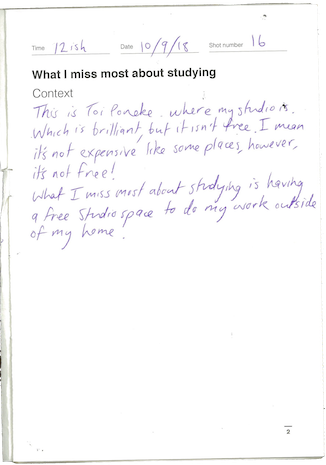 Time 12ish Date 10/9/18 Shot number 16
What I miss most about studying
Context
This is Toi Poneke. where my studio is.
Which is brilliant, but it isn't free. I mean
it's not expensive like some places, however,
it's not free!
What I miss most about studying is having
a free Studio space to do my work outside
of my home!
2